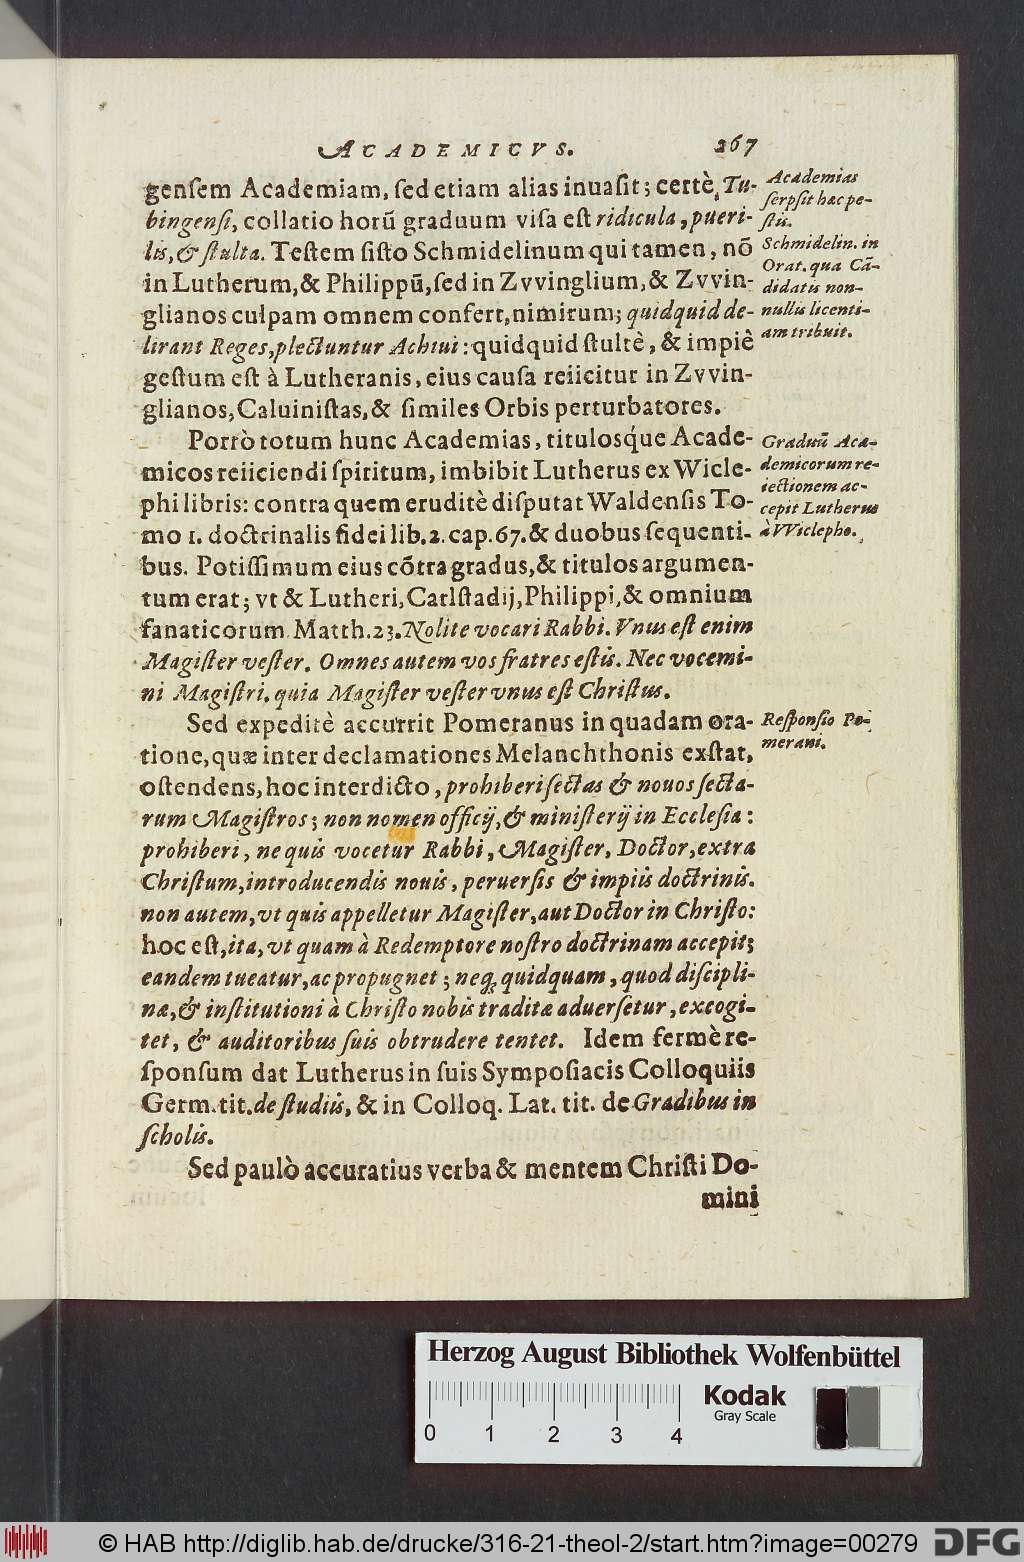 ACADEMICVS. 267
genſem Academiam, ſed etiam alias inuaſit; certè, Tu-
bingenſi, collatio horū graduum viſa eſt ridicula, pueri-
lis, & ſtulta. Teſtem ſiſto Schmidelinum qui tamen, nō
in Lutherum, & Philippū, ſed in Zvvinglium, & Zvvin-
glianos culpam omnem confert, nimirum; quidquid de-
lirant Reges, plectuntur Achiui: quidquid ſtultè, & impiè
geſtum eſt à Lutheranis, eius cauſa reiicitur in Zvvin-
glianos, Caluiniſtas, & ſimiles Orbis perturbatores.
Porrò totum hunc Academias, titulosq́ue Acade-
micos reiiciendi ſpiritum, imbibit Lutherus ex Wicle-
phi libris: contra quem eruditè diſputat Waldenſis To-
mo 1. doctrinalis fidei lib. 2. cap. 67. & duobus ſequenti-
bus. Potiſſimum eius cōtra gradus, & titulos argumen-
tum erat; vt & Lutheri, Carlſtadij, Philippi, & omnium
fanaticorum Matth. 23. Nolite vocari Rabbi. Vnus eſt enim
Magiſter veſter. Omnes autem vos fratres eſtis. Nec vocemi-
ni Magiſtri. quia Magiſter veſter vnus eſt Chriſtus.
Sed expeditè accurrit Pomeranus in quadam ora-
tione, quæ inter declamationes Melanchthonis exſtat,
oſtendens, hoc interdicto, prohiberi ſectas & nouos ſecta-
rum Magiſtros; non nomen officij, & miniſterij in Eccleſia:
prohiberi, ne quis vocetur Rabbi, Magiſter, Doctor, extra
Chriſtum, introducendis nouis, peruerſis & impiis doctrinis.
non autem, vt quis appelletur Magiſter, aut Doctor in Chriſto:
hoc eſt, ita, vt quam à Redemptore noſtro doctrinam accepit;
eandem tueatur, ac propugnet; neq; quidquam, quod diſcipli-
næ, & inſtitutioni à Chriſto nobis traditæ aduerſetur, excogi-
tet, & auditoribus ſuis obtrudere tentet. Idem fermè re-
ſponſum dat Lutherus in ſuis Sympoſiacis Colloquiis
Germ. tit. de ſtudiis, & in Colloq. Lat. tit. de Gradibus in
ſcholis.
Sed paulò accuratius verba & mentem Chriſti Do-
mini
Academias
ſerpſit hæc pe-
ſtis.
Schmidelin. in
Orat. qua Cā-
didatis non-
nullis licenti-
am tribuit.
Graduū Aca-
demicorum re-
iectionem ac-
cepit Lutherus
à Wiclepho.
Reſponſio Po-
merani.
Herzog August Bibliothek Wolfenbüttel
Kodak
Gray Scale
0 1 2 3 4
© HAB http://diglib.hab.de/drucke/316-21-theol-2/start.htm?image=00279
DFG